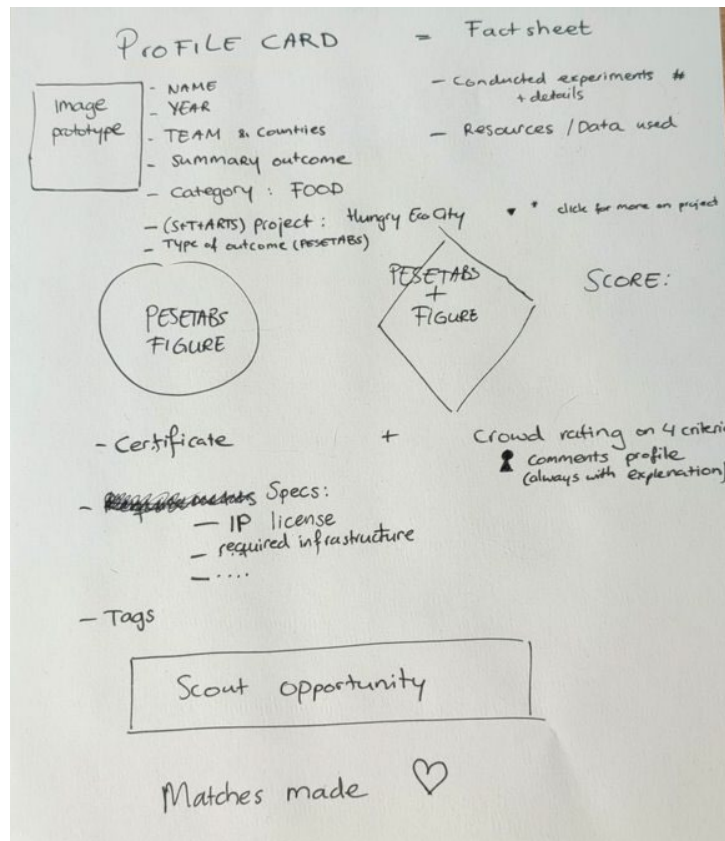 PROFILE CARD = Factsheet
Image prototype
- NAME
- YEAR
- TEAM & Countries
- Summary outcome
- Category : FOOD
- (S+T+ARTS) project : Hungry EcoCity
- Type of outcome (PESETABS)
- Conducted experiments #
+ details
- Resources / Data used
click for more on project
PESETABS
FIGURE
PESETABS
+
FIGURE
SCORE:
- Certificate + Crowd rating on 4 criteria
comments profile
(always with explenation)
- Specs:
- IP license
- required infrastructure
- ....
- Tags
Scout opportunity
Matches made ♡